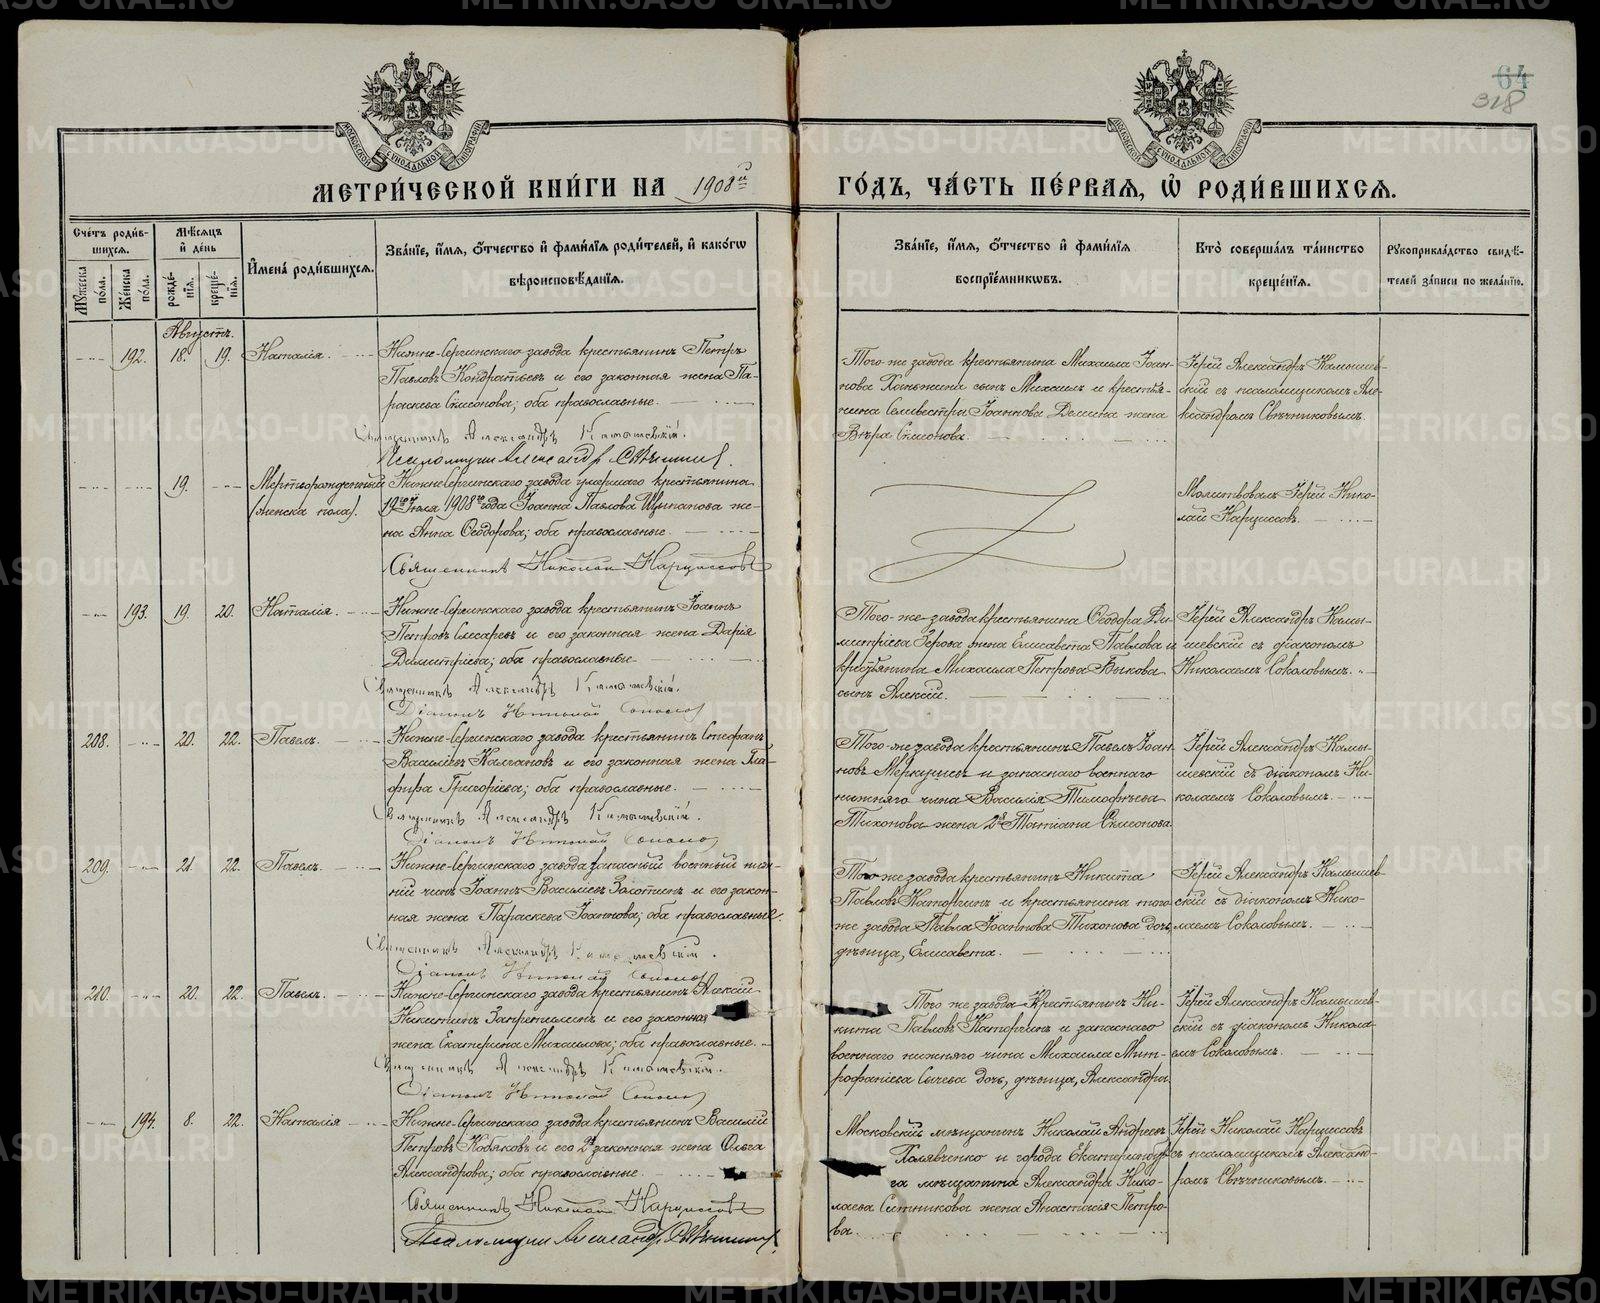 64
318
МОСКОВСКОЙ СѴНОДАЛЬНОЙ ТИПОГРАФІИ
МОСКОВСКОЙ СѴНОДАЛЬНОЙ ТИПОГРАФІИ
МЕТРИ́ЧЕСКОЙ КНИ́ГИ НА 1908й ГО́ДЪ, ЧА́СТЬ ПЕ́РВАѦ, Ѽ РОДИ́ВШИХСѦ.
Сче́тъ роди́в-
шихсѧ.
Мꙋ́жеска по́ла.
Же́нска по́ла.
Мѣ́сѧцъ
и҆ де́нь
рожде́-
нїѧ.
креще́-
нїѧ.
И҆мена̀ роди́вшихсѧ.
Зва́нїе, и҆́мѧ, ѻ҆́тчество и҆ фами́лїѧ роди́телей, и҆ како́гѡ
вѣроисповѣ́данїѧ.
Зва́нїе, и҆́мѧ, ѻ҆́тчество и҆ фами́лїѧ
воспрїе́мникѡвъ.
Кто̀ соверша́лъ та́инство
креще́нїѧ.
Рꙋкоприкла́дство свидѣ́-
телей за́писи по жела́нїю.
Августъ.
192. 18. 19. Наталія.
Нижне-Сергинскаго завода крестьянинъ Петръ
Павловъ Кондратьевъ и его законная жена Па-
раскева Симеонова; оба православные.
Священникъ Александръ Камышевскій.
Псаломщикъ Александръ Свѣчниковъ.
Того-же завода крестьянина Михаила Іоан-
нова Ханьжина сынъ Михаилъ и крестья-
нина Селивестра Іоаннова Демина жена
Вѣра Симеонова.
Іерей Александръ Камышев-
скій съ псаломщикомъ Але-
ксандромъ Свѣчниковымъ.
19. Мертворожденный
(женска пола).
Нижне-Сергинскаго завода умершаго крестьянина
19го Іюля 1908го года Іоанна Павлова Щипанова же-
на Анна Ѳеодорова; оба православные.
Священникъ Николай Нарциссовъ
Молитвовалъ Іерей Нико-
лай Нарциссовъ.
193. 19. 20. Наталія.
Нижне-Сергинскаго завода крестьянинъ Іоаннъ
Петровъ Слесаревъ и его законная жена Дарія
Димитріева; оба православные.
Священникъ Александръ Камышевскій.
Діаконъ Николай Соколовъ
Того-же завода крестьянина Ѳеодора Ди-
митріева Зерова жена Елисавета Павлова и
крестьянина Михаила Петрова Быкова
сынъ Алексій.
Іерей Александръ Камы-
шевскій съ діакономъ
Николаемъ Соколовымъ.
208. 20. 22. Павелъ.
Нижне-Сергинскаго завода крестьянинъ Стефанъ
Василіевъ Колчановъ и его законная жена Гла-
фира Григоріева; оба православные.
Священникъ Александръ Камышевскій.
Діаконъ Николай Соколовъ
Того-же завода крестьянинъ Павелъ Іоан-
новъ Меркушевъ и запаснаго военнаго
нижняго чина Василія Тимофѣева
Тихонова жена 2я Татіана Симеонова.
Іерей Александръ Камы-
шевскій съ діакономъ Ни-
колаемъ Соколовымъ.
209. 21. 22. Павелъ.
Нижне-Сергинскаго завода запасный военный ниж-
ній чинъ Іоаннъ Василіевъ Золотинъ и его закон-
ная жена Параскева Іоаннова; оба православные.
Священникъ Александръ Камышевскій.
Діаконъ Николай Соколовъ
Того же завода крестьянинъ Никита
Павловъ Каторгинъ и крестьянина того
же завода Павла Іоаннова Тихонова дочь,
дѣвица, Елисавета.
Іерей Александръ Камышев-
скій съ діакономъ Нико-
лаемъ Соколовымъ.
210. 20. 22. Павелъ.
Нижне-Сергинскаго завода крестьянинъ Алексій
Никитинъ Запретилинъ и его законная
жена Екатерина Михаилова; оба православные.
Священникъ Александръ Камышевскій.
Діаконъ Николай Соколовъ
Того же завода крестьянинъ Ни-
кита Павловъ Каторгинъ и запаснаго
военнаго нижняго чина Михаила Мит-
рофаніева Сычева дочь, дѣвица, Александра.
Іерей Александръ Камышев-
скій съ діакономъ Никола-
емъ Соколовымъ.
194. 8. 22. Наталія
Нижне-Сергинскаго завода крестьянинъ Василій
Петровъ Кобяковъ и его 2я законная жена Ольга
Александрова; оба православные.
Священникъ Николай Нарциссовъ
Псаломщикъ Александръ Свѣчниковъ.
Московскій мѣщанинъ Николай Андреевъ
Полявченко и города Екатеринбур-
га мѣщанина Александра Нико-
лаева Ситникова жена Анастасія Петро-
ва.
Іерей Николай Нарциссовъ
съ псаломщикомъ Александ-
ромъ Свѣчниковымъ.
METRIKI.GASO-URAL.RU